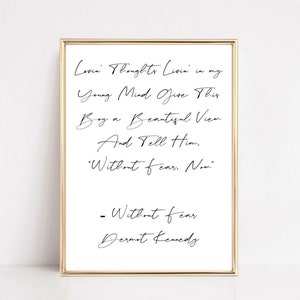 Lovin' Thoughts Livin' in my
Young Mind Give This
Boy a Beautiful View
And Tell Him,
"Without Fear, Now"
- Without Fear
Dermot Kennedy